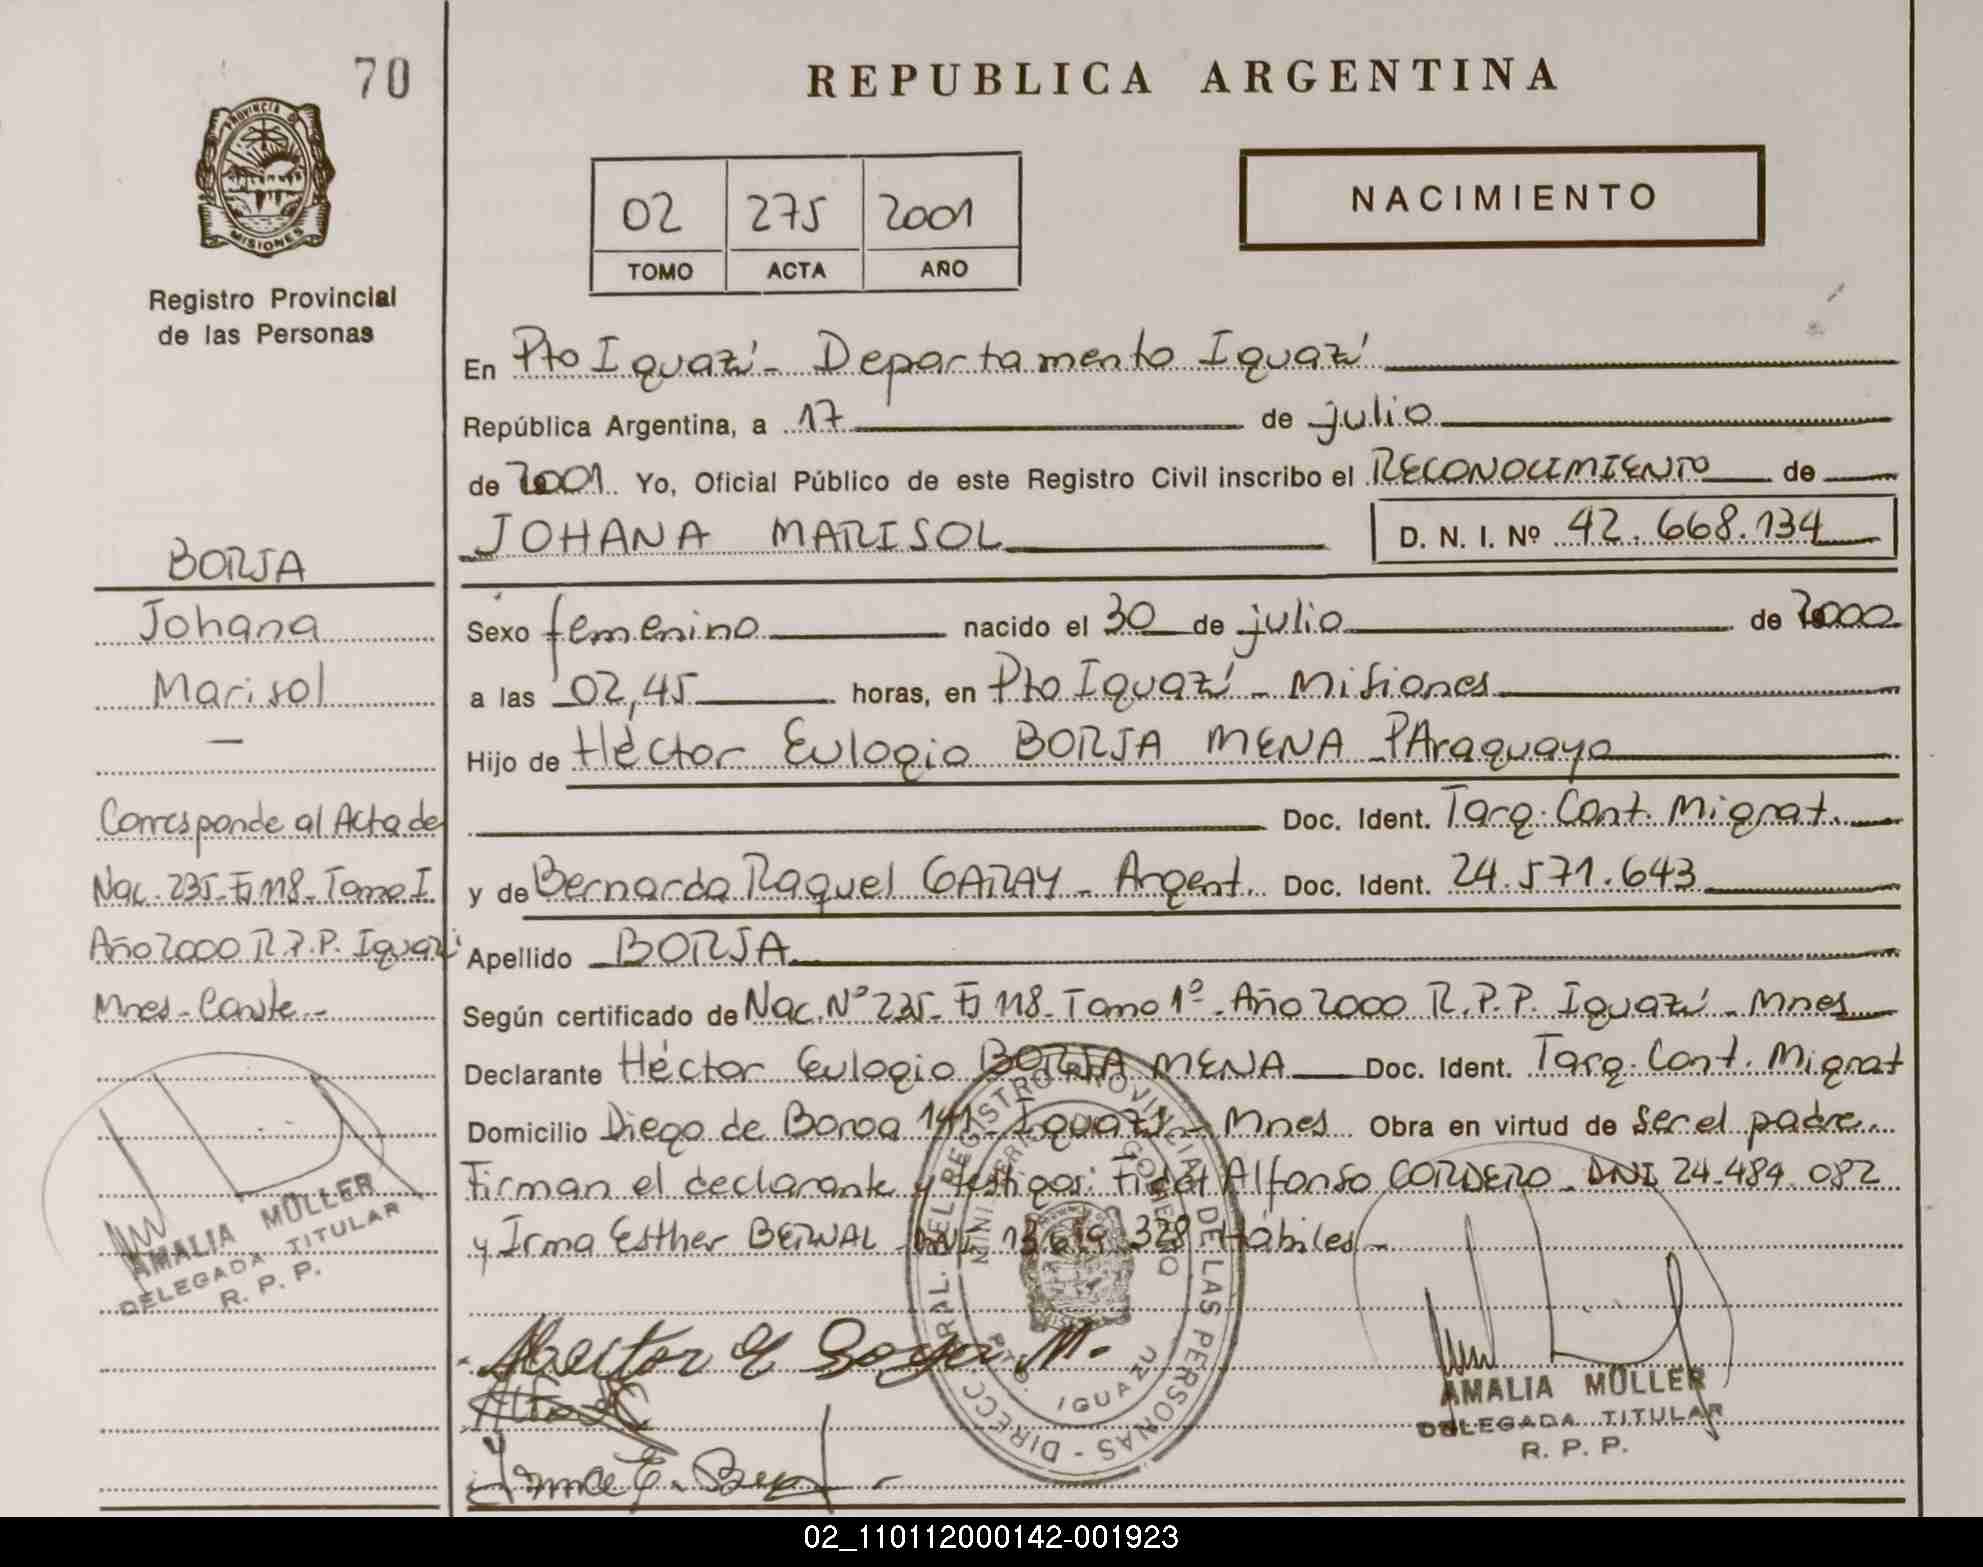 70
PROVINCIA DE
MISIONES
Registro Provincial
de las Personas
REPUBLICA ARGENTINA
02 275 2001
TOMO ACTA AÑO
NACIMIENTO
En Pto Iguazú - Departamento Iguazú
República Argentina, a 17 de julio
de 2001 Yo, Oficial Público de este Registro Civil inscribo el RECONOCIMIENTO de
JOHANA MARISOL D. N. I. Nº 42.668.134
Sexo femenino nacido el 30 de julio de 2000
a las 02,45 horas, en Pto Iguazú - Misiones
Hijo de Héctor Eulogio BORJA MENA - PAraguayo
Doc. Ident. Tarq. Cont. Migrat.
y de Bernarda Raquel GARAY - Argent. Doc. Ident. 24.571.643
Apellido BORJA
Según certificado de Nac. Nº 235 - Fj 118 - Tomo 1º - Año 2000 R.P.P. Iguazú - Mnes
Declarante Héctor Eulogio BORJA MENA Doc. Ident. Tarq. Cont. Migrat
Domicilio Diego de Boroa 141 - Iguazú - Mnes Obra en virtud de ser el padre.
Firman el declarante y testigos: Fidel Alfonso CORDERO - DNI 24.484.082
y Irma Esther BERNAL - DNI 13. 328 Hábiles -
BORJA
Johana
Marisol
—
Corresponde al Acta de
Nac. 235 - Fj 118 - Tomo I
Año 2000 R.P.P. Iguazú
Mnes - Conste -
AMALIA MÜLLER
DELEGADA TITULAR
R. P. P.
DIRECC. GRAL. DEL REGISTRO PROVINCIAL DE LAS PERSONAS -
MINISTERIO DE GOBIERNO
PTO. IGUAZU
Hector E Borja M.
Irma E. Bernal
AMALIA MÜLLER
DELEGADA TITULAR
R. P. P.
02_110112000142-001923